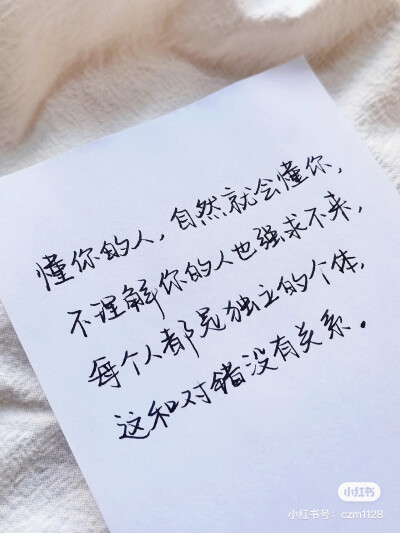 懂你的人，自然就会懂你，
不理解你的人也强求不来，
每个人都是独立的个体，
这和对错没有关系。
小红书
小红书号：czm1128